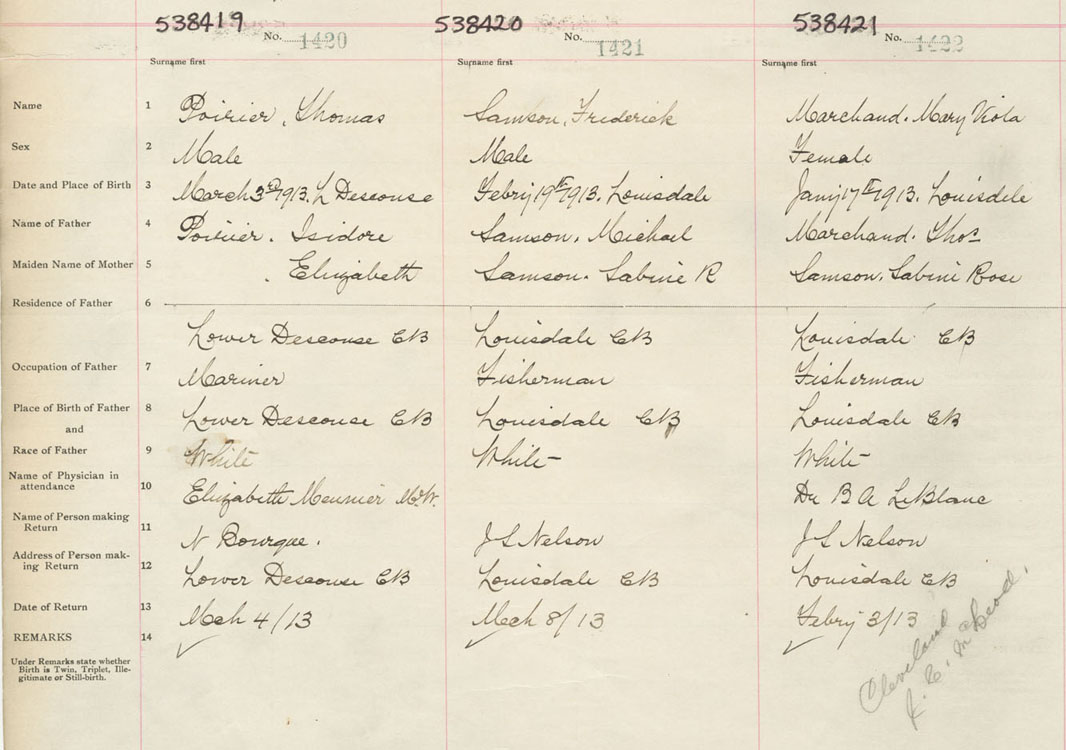 538419 538420 538421
No. 1420 No. 1421 No. 1422
Surname first Surname first Surname first
Name 1 Poirier, Thomas Samson, Frederick Marchand. Mary Viola
Sex 2 Male Male Female
Date and Place of Birth 3 March 3rd 1913. L Descouse Febry 19th 1913. Louisdale Jany 17th 1913. Louisdale
Name of Father 4 Poirier. Isidore Samson. Michael Marchand. Thos
Maiden Name of Mother 5 . Elizabeth Samson. Sabine R Samson. Sabine Rose
Residence of Father 6
Lower Descouse CB Louisdale CB Louisdale CB
Occupation of Father 7 Mariner Fisherman Fisherman
Place of Birth of Father 8 Lower Descouse CB Louisdale CB Louisdale CB
and
Race of Father 9 White White White
Name of Physician in
attendance 10 Elizabeth Meunier Md.W. Dr B A LeBlanc
Name of Person making
Return 11 N Bourque. J S Nelson J S Nelson
Address of Person mak-
ing Return 12 Lower Descouse CB Louisdale CB Louisdale CB
Date of Return 13 Mch 4/13 Mch 8/13 Febry 3/13
REMARKS 14
Under Remarks state whether
Birth is Twin, Triplet, Ille-
gitimate or Still-birth.
Cleveland
J. C. McLeod.